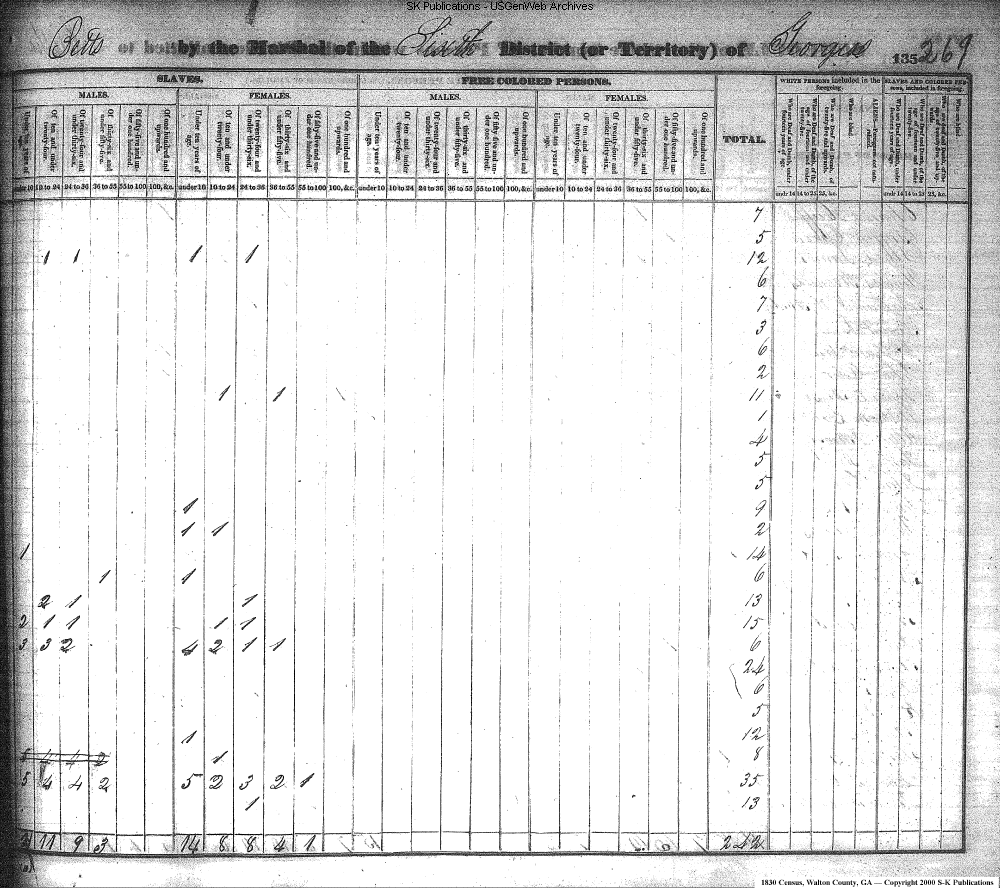 SK Publications - USGenWeb Archives
Betts by the Marshal of the Sixth District (or Territory) of Georgia 135 269
SLAVES. FREE COLORED PERSONS. TOTAL. WHITE PERSONS included in the foregoing. SLAVES AND COLORED PERSONS, included in foregoing.
MALES. FEMALES. MALES. FEMALES.
Under ten years of Of ten and under twenty-four. Of twenty-four and under thirty-six. Of thirty-six and under fifty-five. Of fifty-five and under one hundred. Of one hundred and upwards. Under ten years of age. Of ten and under twenty-four. Of twenty-four and under thirty-six. Of thirty-six and under fifty-five. Of fifty-five and under one hundred. Of one hundred and upwards. Under ten years of age. Of ten and under twenty-four. Of twenty-four and under thirty-six. Of thirty-six and under fifty-five. Of fifty-five and under one hundred. Of one hundred and upwards. Under ten years of age. Of ten and under twenty-four. Of twenty-four and under thirty-six. Of thirty-six and under fifty-five. Of fifty-five and under one hundred. Of one hundred and upwards.
under 10 10 to 24 24 to 36 36 to 55 55 to 100 100, &c. under 10 10 to 24 24 to 36 36 to 55 55 to 100 100, &c. under 10 10 to 24 24 to 36 36 to 55 55 to 100 100, &c. under 10 10 to 24 24 to 36 36 to 55 55 to 100 100, &c. undr 14 14 to 25 25, &c. undr 14 14 to 25 25, &c.
7
5
1 1 1 1 12
6
7
3
6
2
1 1 11
1
4
5
5
1 9
1 1 2
1 14
1 1 6
2 1 1 13
2 1 1 1 1 15
3 3 2 4 2 1 1 6
24
6
5
1 12
5 4 4 2 1 8
5 4 4 2 5 2 3 2 1 35
1 13
11 9 3 14 8 8 4 1 242
1830 Census, Walton County, GA — Copyright 2000 S-K Publications